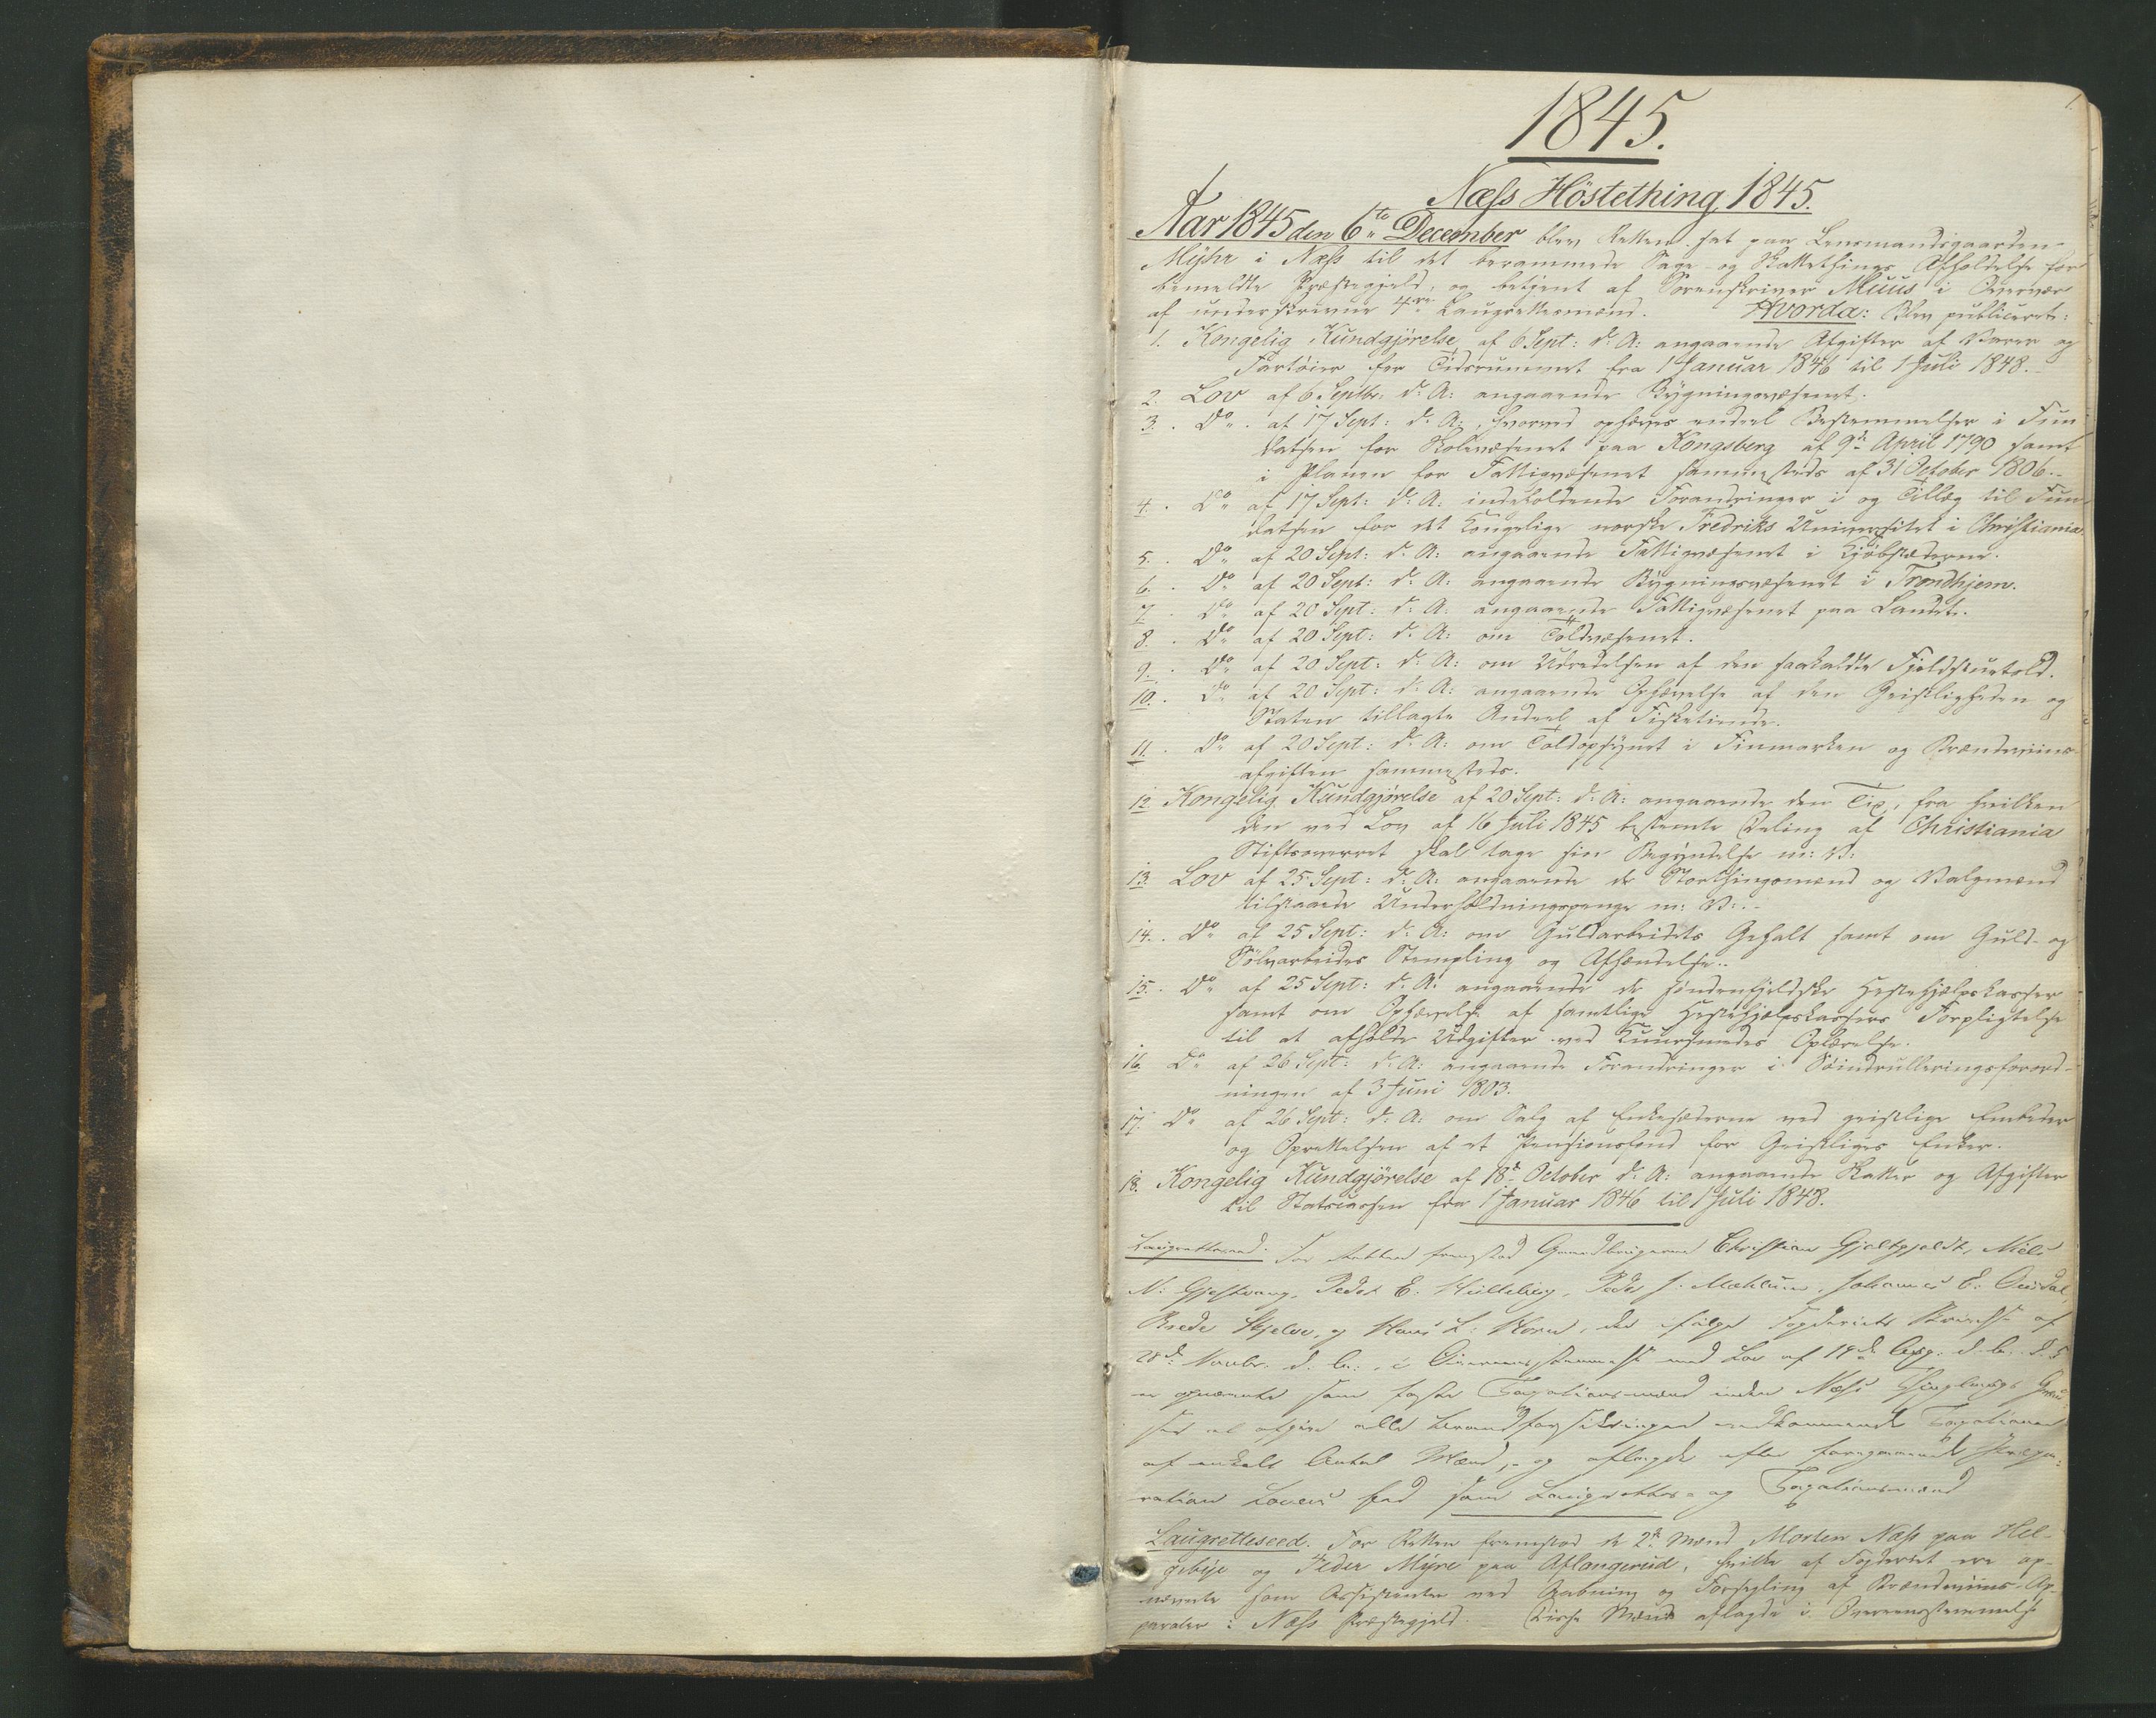 1.
1845.
Næss Höstething 1845.
Aar 1845 den 6te December blev Retten sat paa Lensmandsgaarden
Myhr i Næss til det berammede Sage- og Skattethings Afholdelse for
bemeldte Præstegjeld, og betjent af Sorenskriver Muus i Overvær
af underskrevne 4re Laugrettesmænd. Hvorda: Blev publiceret:
1. Kongelig Kundgjørelse af 6 Sept: d. A: angaaende Afgifter af Varer og
Fartøier for Tidsrummet fra 1 Januar 1846 til 1 Juli 1848.
2. Lov af 6 Septbr. d. A: angaaende Bygningsvæsenet.
3. Do. af 17 Sept: d. A:, hvorved ophæves endeel Bestemmelser i Fun
datsen for Skolevæsenet paa Kongsberg af 9de April 1790 samt
i Planen for Fattigvæsenet sammesteds af 31 October 1806.
4. Do af 17 Sept: d. A: indeholdende Forandringer i og Tillæg til Fun-
datsen for det Kongelige norske Fredriks Universitet i Christiania.
5. Do af 20 Sept: d. A: angaaende Fattigvæsenet i Kjøbstæderne.
6. Do af 20 Sept: d. A: angaaende Bygningsvæsenet i Trondhjem.
7. Do af 20 Sept: d. A: angaaende Fattigvæsenet paa Landet.
8. Do af 20 Sept: d. A: om Toldvæsenet.
9. Do af 20 Sept: d. A: om Udredelsen af den saakaldte Fjeldstuetold.
10. Do af 20 Sept: d. A: angaaende Ophævelse af den Geistligheden og
Staten tillagte Andeel af Fisketiende.
11. Do af 20 Sept: d. A: om Toldopsynet i Finmarken og Brændeviins-
afgiften sammesteds.
12 Kongelig Kundgjørelse af 20 Sept: d. A: angaaende den Tid, fra hvilken
den ved Lov af 16 Juli 1845 bestemte Deling af Christiania
Stiftsoverret skal tage sin Begyndelse m: V:
13. Lov af 25 Sept: d. A: angaaende de Storthingsmænd og Valgmænd
tilstaaede Underholdningspenge m: V:
14. Do af 25 Sept: d. A: om Guldarbeidets Gehalt samt om Guld- og
Sölvarbeides Stempling og Afhændelse.
15. Do af 25 Sept: d. A: angaaende de søndenfjeldske Hestehjælpskasser
samt om Ophævelse af samtlige Hestehjælpskassers Forpligtelse
til at afholde Udgifter ved Kuursmedes Oplærelse.
16. Do af 26 Sept: d. A: angaaende Forandringer i Söindrulleringsforord-
ningen af 3 Juni 1803.
17. Do af 26 Sept: d. A: om Salg af Enkesæderne ved geistlige Embeder
og Oprettelsen af et Pensionsfond for Geistliges Enker.
18. Kongelig Kundgjørelse af 18de October d. A: angaaende Skatter og Afgifter
til Statscassen fra 1 Januar 1846 til 1 Juli 1848.
Laugretteseed. For Retten fremstod Gaardbrugerne Christian Gjeltgjeldt, Niels
N: Gjestvang, Peder E. Hulleberg, Peder J. Mæhlum, Johannes
Brede Skjelve, og Hans L: Horn, der ifølge Fogderiets Skrivelse af
28de Novbr. d. A:, i Overensstemmelse med Lov af
er opnævnte som faste Taxationsmænd inden Næss Thinglaugs
for at afgive alle Brandforsikringen vedkommende Taxationer
af enkelt Antal Mænd,- og aflagde efter foregaaende Præpa-
ration Lovens Eed som Laugrettes- og Taxationsmænd
Laugretteseed. For Retten fremstod de 2de Mænd Morten Næss paa Hel-
gebye og Peder Myre paa Aflangerud, hvilke af Fogderiet ere op-
nævnte som Assistenter ved Aabning og Forsegling af Brændeviins-Ap-
parater i Næss Præstegjeld. Disse Mænd aflagde i Overeensstemmelse